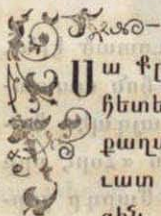 Սա քր
հետե
քաղա
ւատ